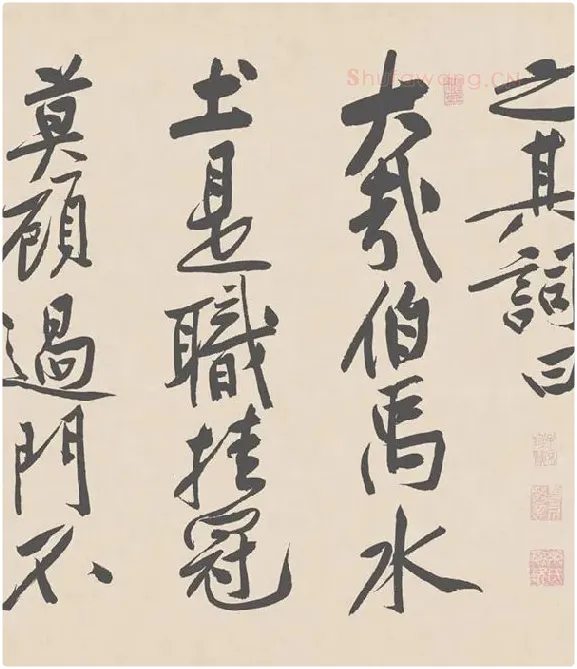 之其詞曰
大哉伯禹水
土是職挂冠
莫顧過門不
Shufawang.CN